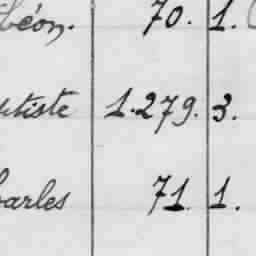 béon. 70. 1.
ptiste 1.279. 3.
harles 71 1.